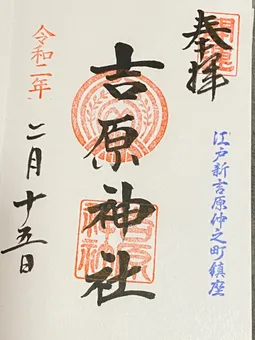 奉拝
江戸新吉原仲之町鎮座
吉原神社
令和二年
二月十五日